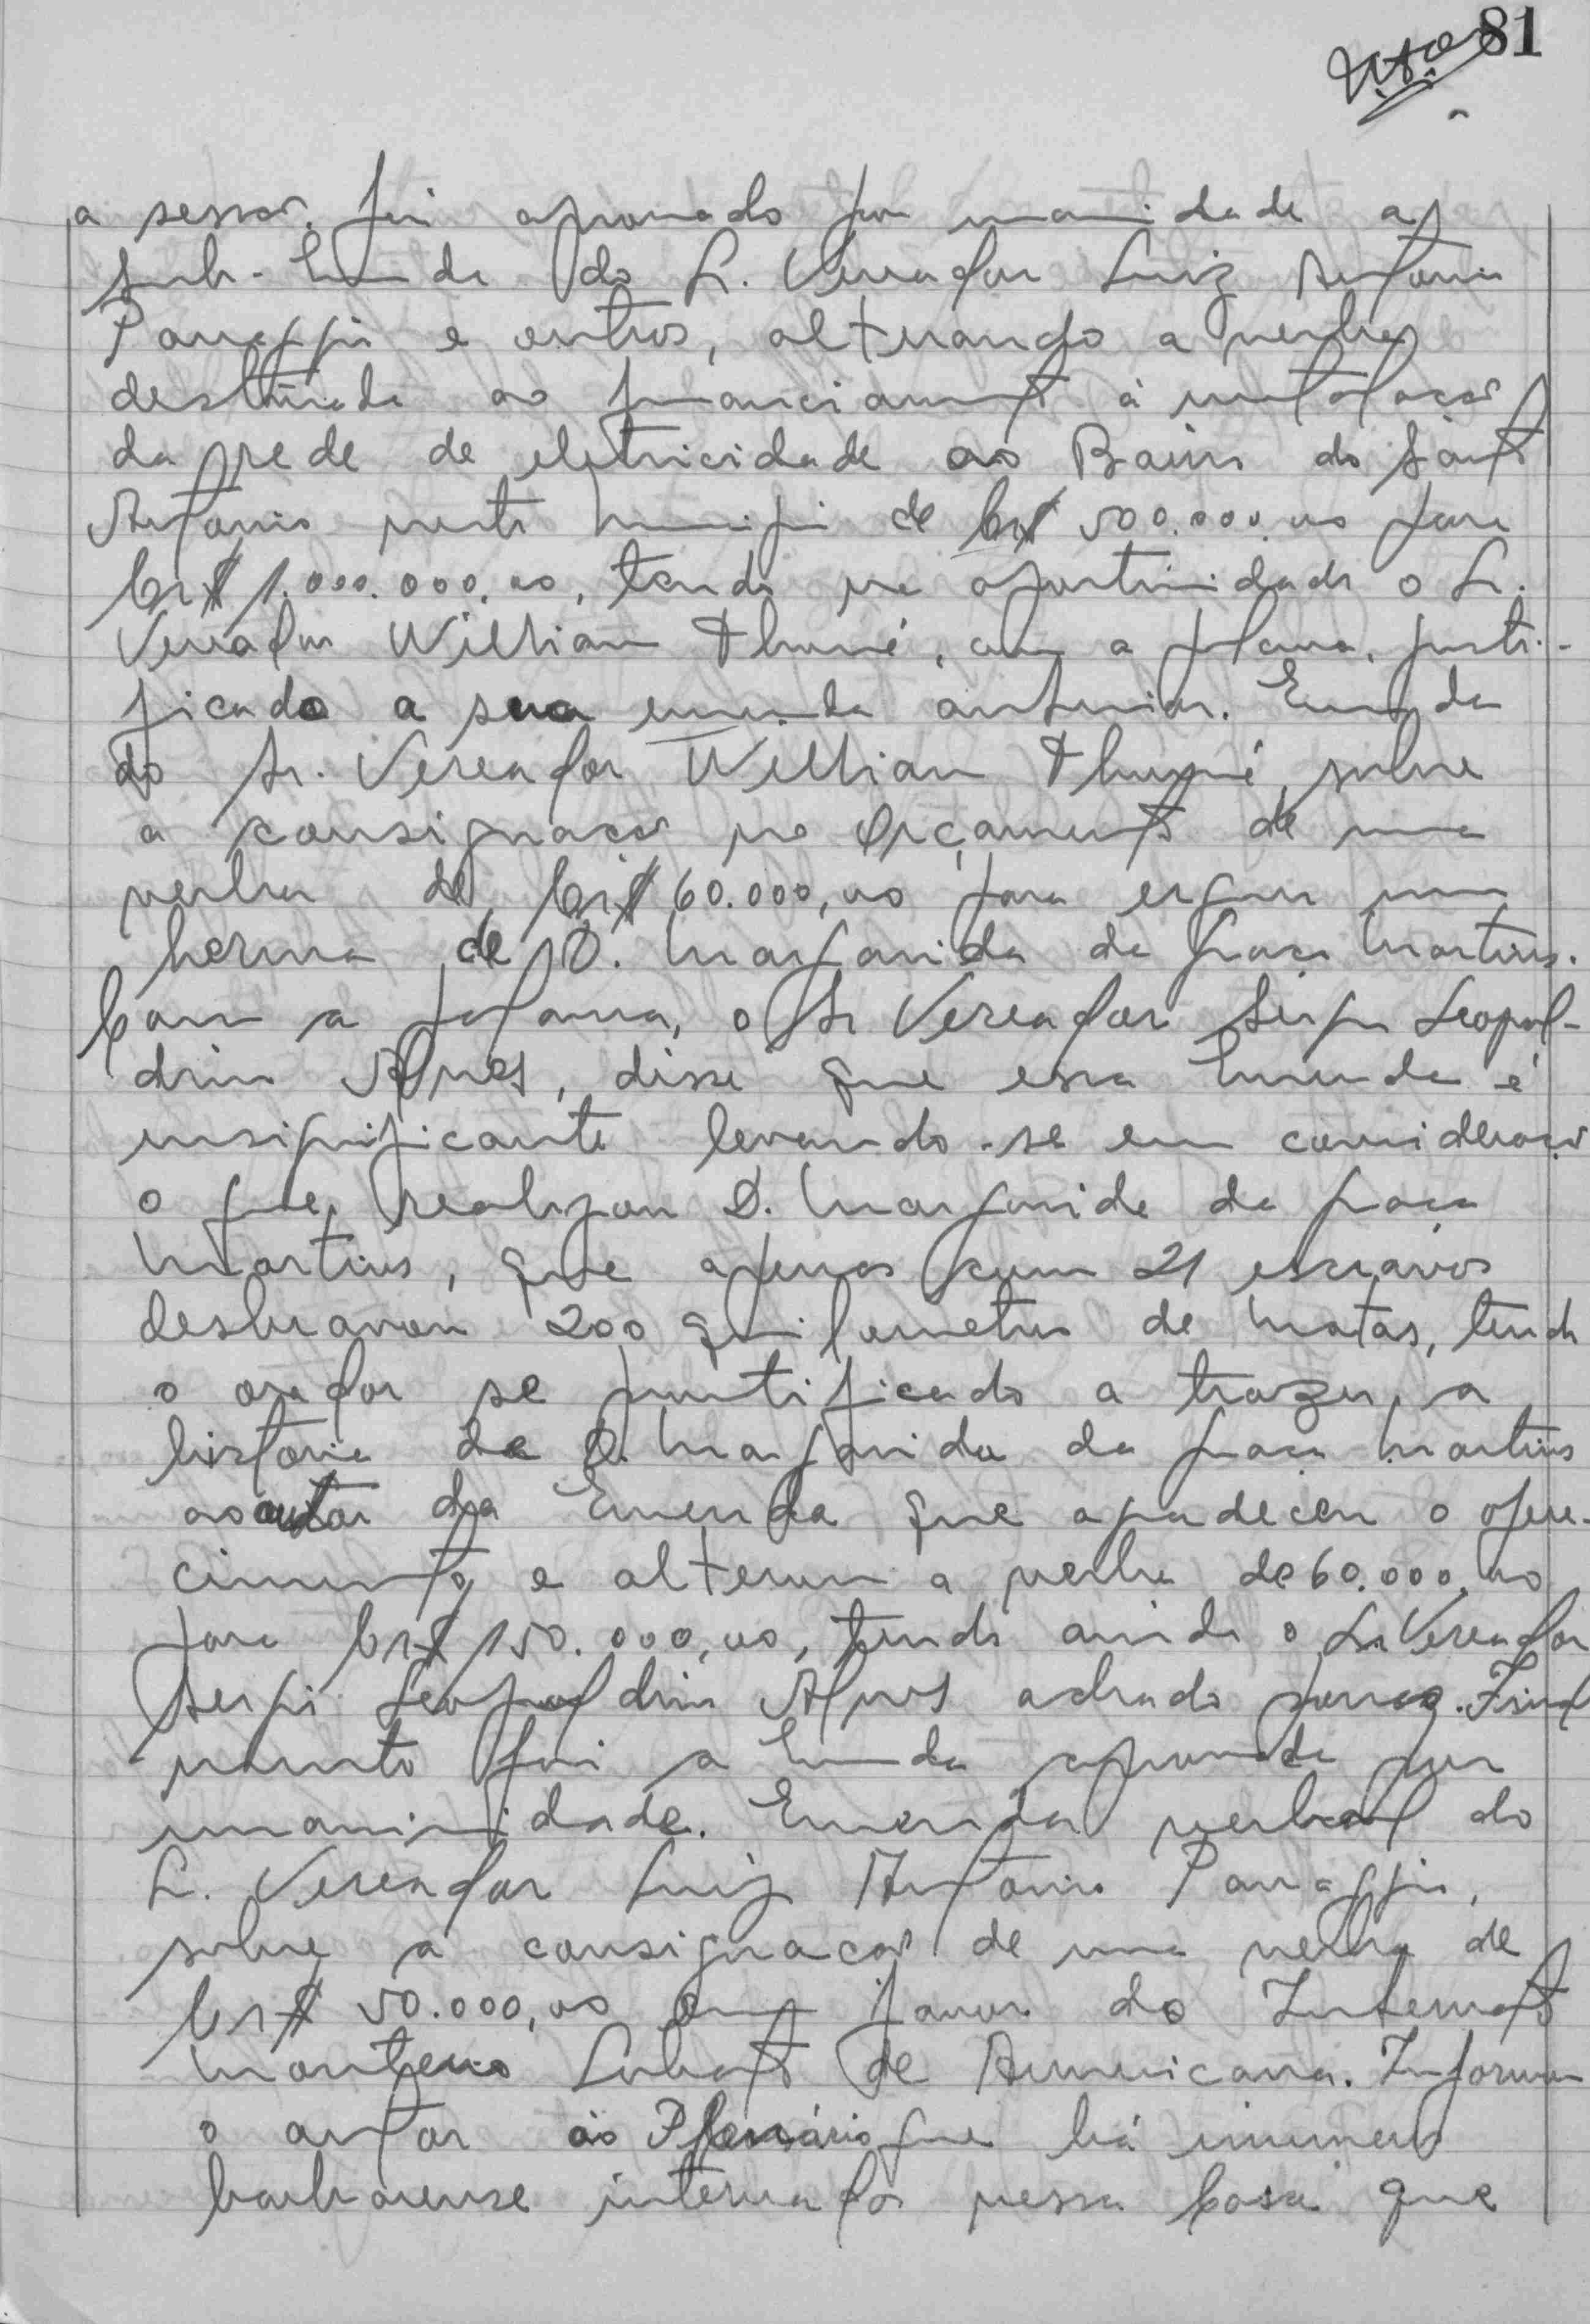 81
a sessão, foi aprovado por unanimidade a
sub-Emenda do Sr. Vereador Luiz Antonio
Panaggio e outros, alterando a verba
destinada ao financiamento à instalação
da rede de eletricidade ao Bairro do Santo
Antonio neste Municipio de Cr$ 500.000,00 para
Cr$ 1.000.000,00, tendo na oportunidade o Sr.
Vereador Willian Thumé, com a palavra, justi-
ficado a sua emenda anterior. Emenda
do Sr. Vereador Willian Thumé, sobre
a consignação no Orçamento de uma
verba de Cr$ 60.000,00 para erguer uma
herma de D. Margarida da Graça Martins.
Com a palavra, o Sr Vereador Sergio Leopol-
dino Alves, disse que essa Emenda é
insignificante levando-se em consideração
o que realizou D. Margarida da Graça
Martins, que apenas com 21 escravos
desbravou 200 quilometros de Matas, tendo
o orador se prontificado a trazer a
historia de D. Margarida da Graça Martins
ao autor da Emenda que agradeceu o ofere-
cimento e alterou a verba de 60.000,00
para Cr$ 150.000,00, tendo ainda o Sr. Vereador
Sergio Leopoldino Alves achado pouco. Final
mente foi a Emenda aprovada por
unanimidade. Emenda verbal do
Sr. Vereador Luiz Antonio Panaggio,
sobre a consignação de uma verba de
Cr$ 50.000,00 em favor do Internato
Monteiro Lobato de Americana. Informou
o autor ao Plenário que há inumeros
barbarense internados nessa Casa que